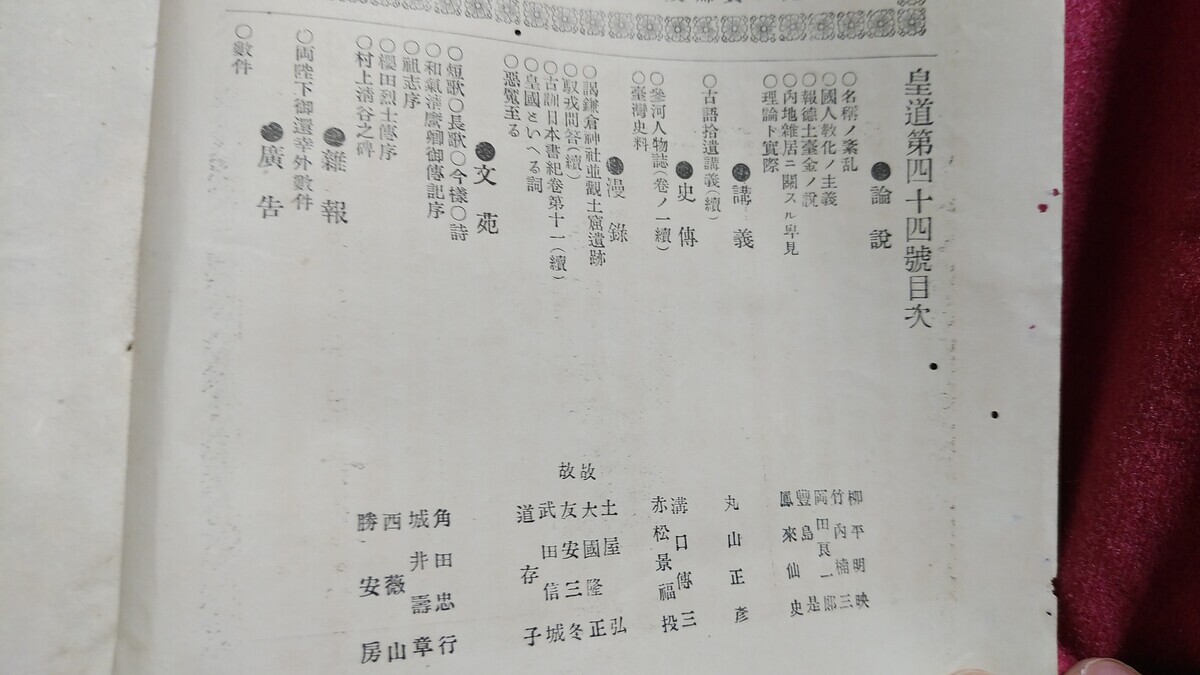 皇道第四十四號目次
●論說
○名稱ノ紊乱 柳平明映
○國人敎化ノ主義 竹内楠三
○報德土臺金ノ說 岡田良一郎
○内地雜居ニ關スル卑見 豐島是
○理論ト實際 鳳來仙史
●講義
○古語拾遺講義(續) 丸山正彥
●史傳
○參河人物誌(卷ノ一續) 溝口傳三
○臺灣史料 赤松景福投
●漫錄
○謁鎌倉神社並觀土窟遺跡 土屋弘
○馭戎問答(續) 故大國隆正
○古訓日本書紀卷第十一(續) 故友安三冬
○皇國といへる詞 武田信城
○惡魔至る 道存子
●文苑
○短歌○長歌○今樣○詩
○和氣淸麿卿御傳記序 角田忠行
○祖志序 城井壽章
○櫻田烈士傳序 西薇山
○村上淸谷之碑 勝安房
●雜報
○両陛下御還幸外數件
●廣告
○數件